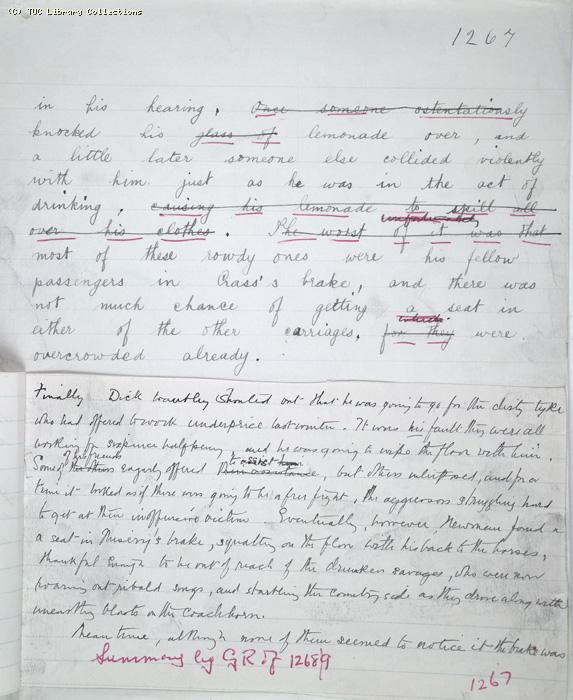 (C) TUC Library Collections
1267
in his hearing. Once someone ostentatiously
knocked his glass of lemonade over, and
a little later someone else collided violently
with him just as he was in the act of
drinking, causing his lemonade to spill all
unfortunately
over his clothes. The worst of it was that
most of these rowdy ones were his fellow
passengers in Crass's brake, and there was
not much chance of getting a seat in
which
either of the other carriages, for they were
overcrowded already.
Finally Dick Wantley Shouted out that he was going to go for the dirty tyke
who had offered to work underprice last winter. It was his fault they were all
working for sixpence halfpenny and he was going to wipe the floor with him.
of his friends to assist him
Some of the others eagerly offered their assistance, but others interposed, and for a
time it looked as if there was going to be a free fight, the aggressors struggling hard
to get at their inoffensive victim. Eventually, however, Newman found a
a seat in Misery's brake, squatting on the floor with his back to the horses,
thankful enough to be out of reach of the drunken savages, who were now
roaring out ribald songs, and startling the country side as they drove along with
unearthly blasts on the coachhorn.
Meantime, although none of them seemed to notice it the brake was
1267